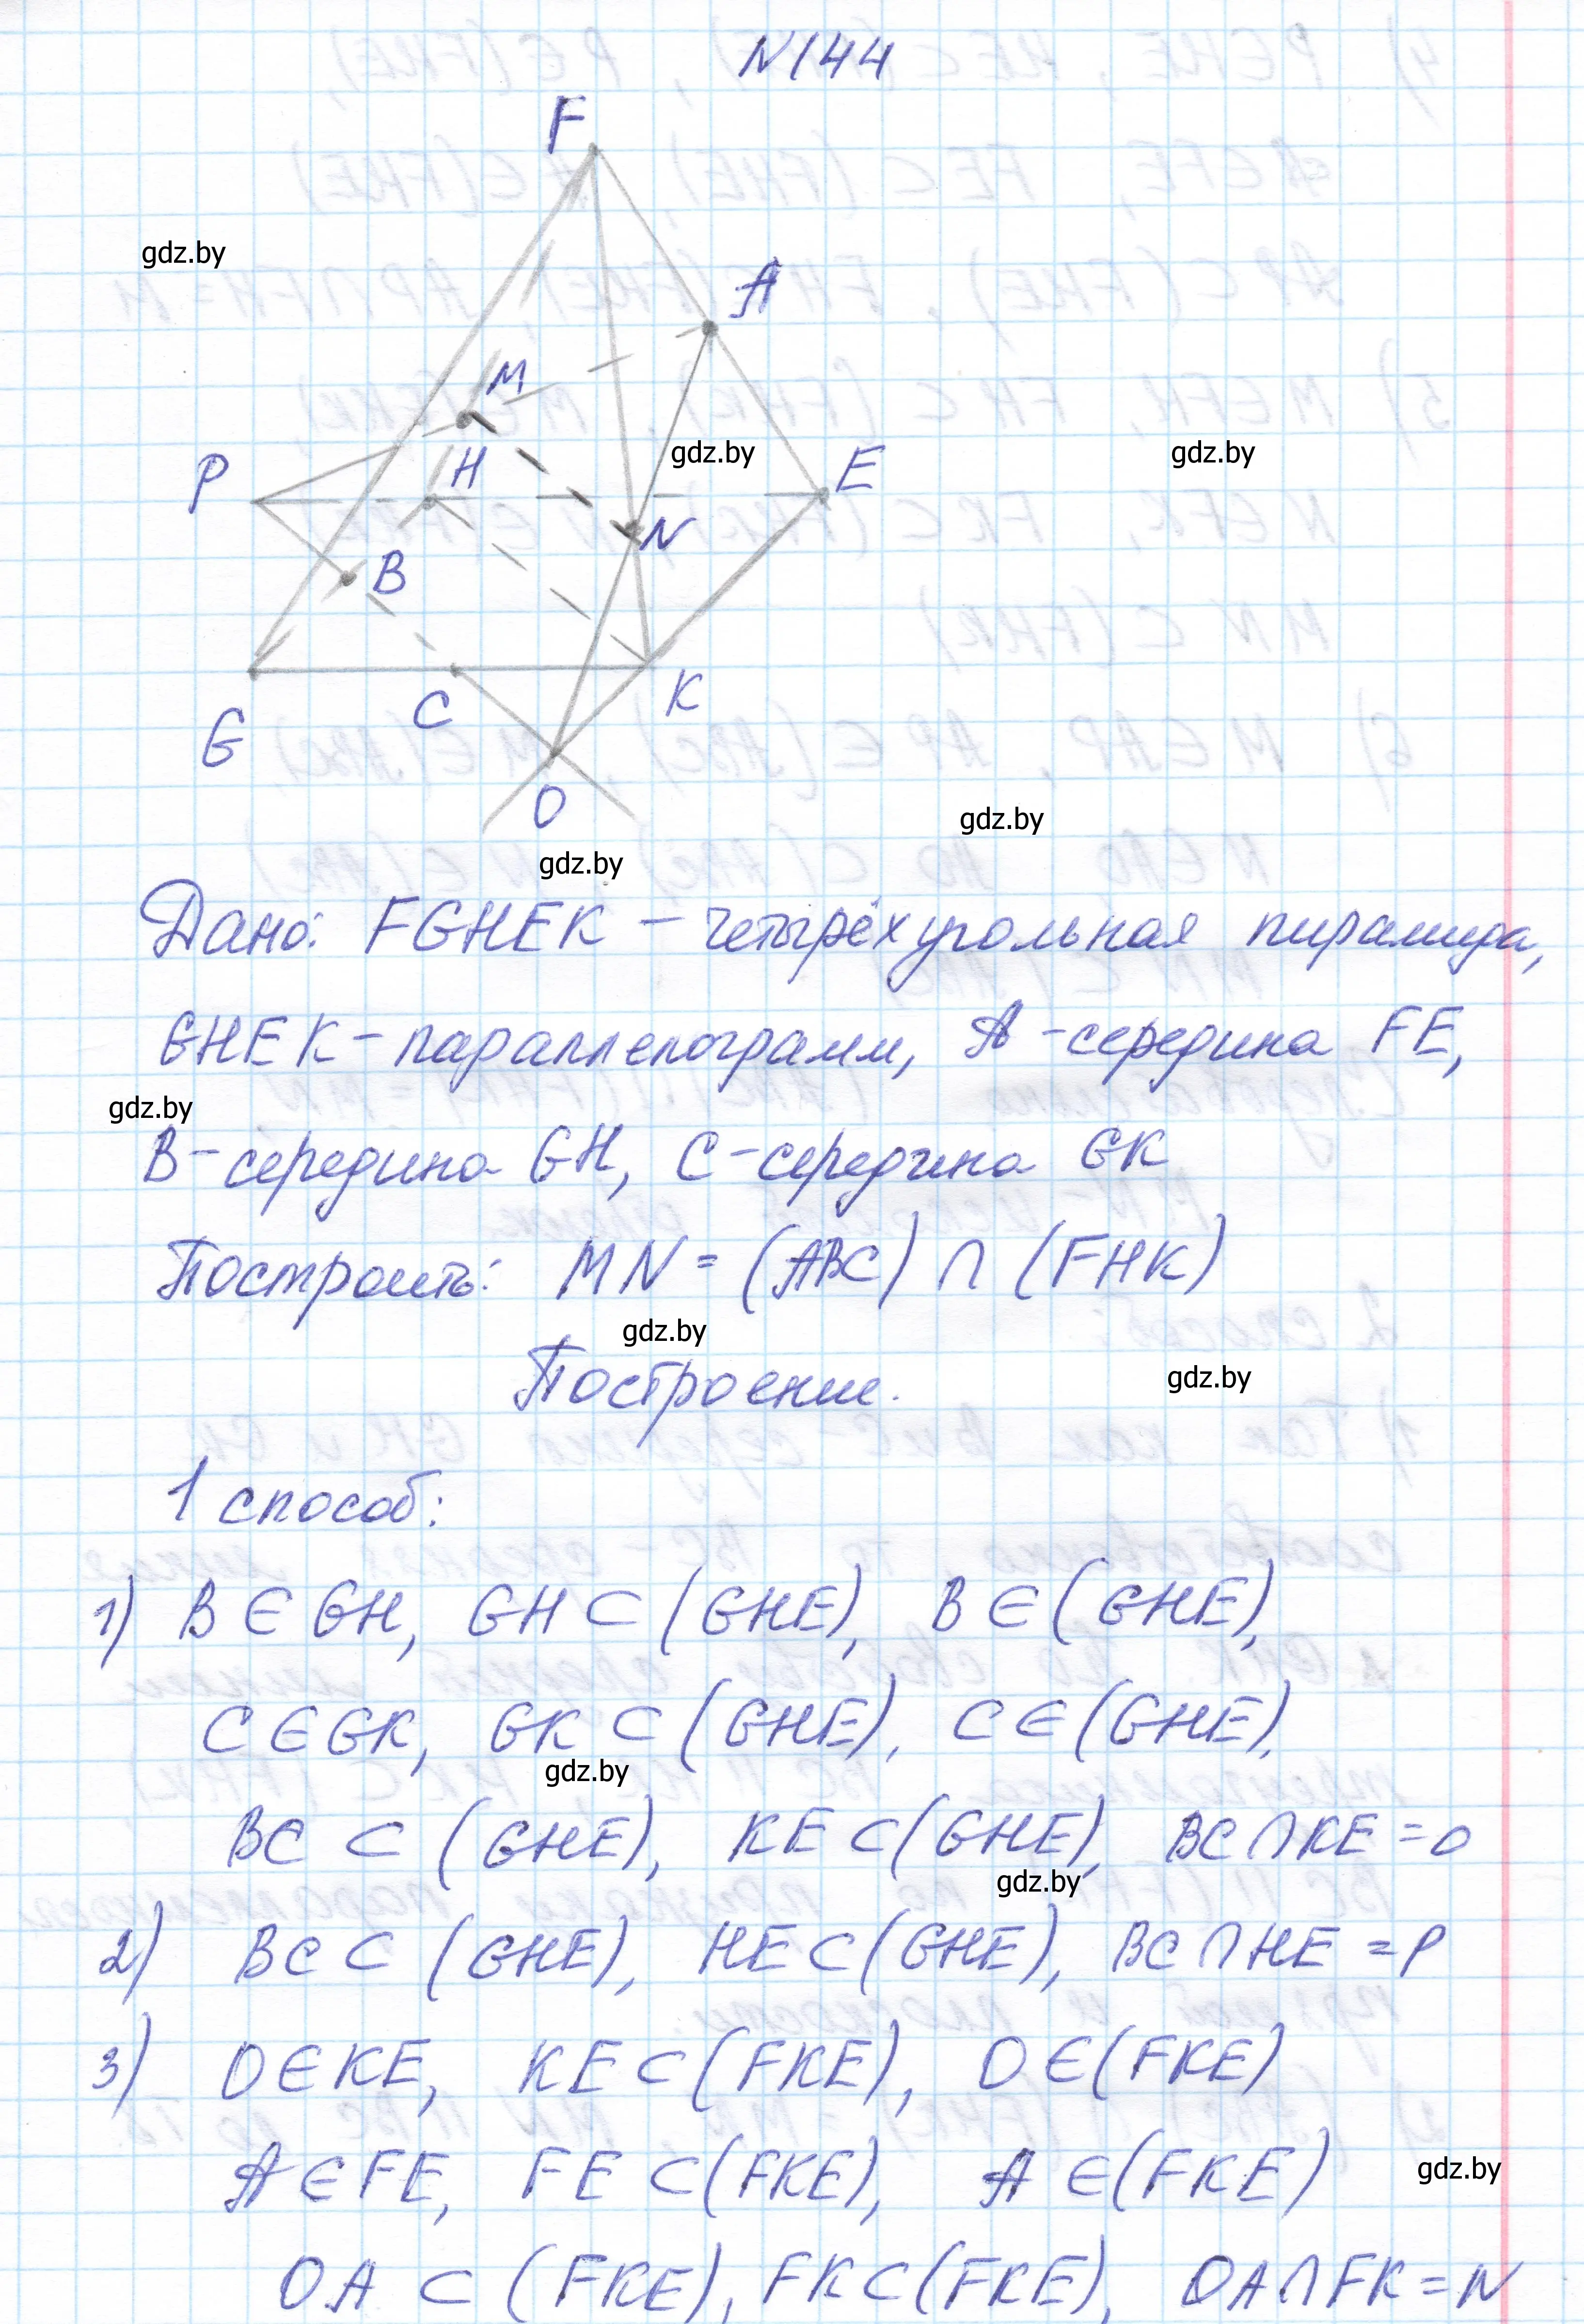 N144
F
gdz.by
A
M
gdz.by
gdz.by
P
H
E
N
B
C
K
G
O
gdz.by
gdz.by
Дано: FGHEK – четырёхугольная пирамида,
GHEK – параллелограмм, A – середина FE,
gdz.by
B – середина GH, C – середина GK
Построить: MN = (ABC) ∩ (FHK)
gdz.by
Построение.
gdz.by
1 способ:
1) B ∈ GH, GH ⊂ (GHE), B ∈ (GHE),
C ∈ GK, GK ⊂ (GHE), C ∈ (GHE),
gdz.by
BC ⊂ (GHE), KE ⊂ (GHE), BC ∩ KE = O
gdz.by
2) BC ⊂ (GHE), HE ⊂ (GHE), BC ∩ HE = P
3) O ∈ KE, KE ⊂ (FKE), O ∈ (FKE)
A ∈ FE, FE ⊂ (FKE), A ∈ (FKE)
gdz.by
OA ⊂ (FKE), FK ⊂ (FKE), OA ∩ FK = N